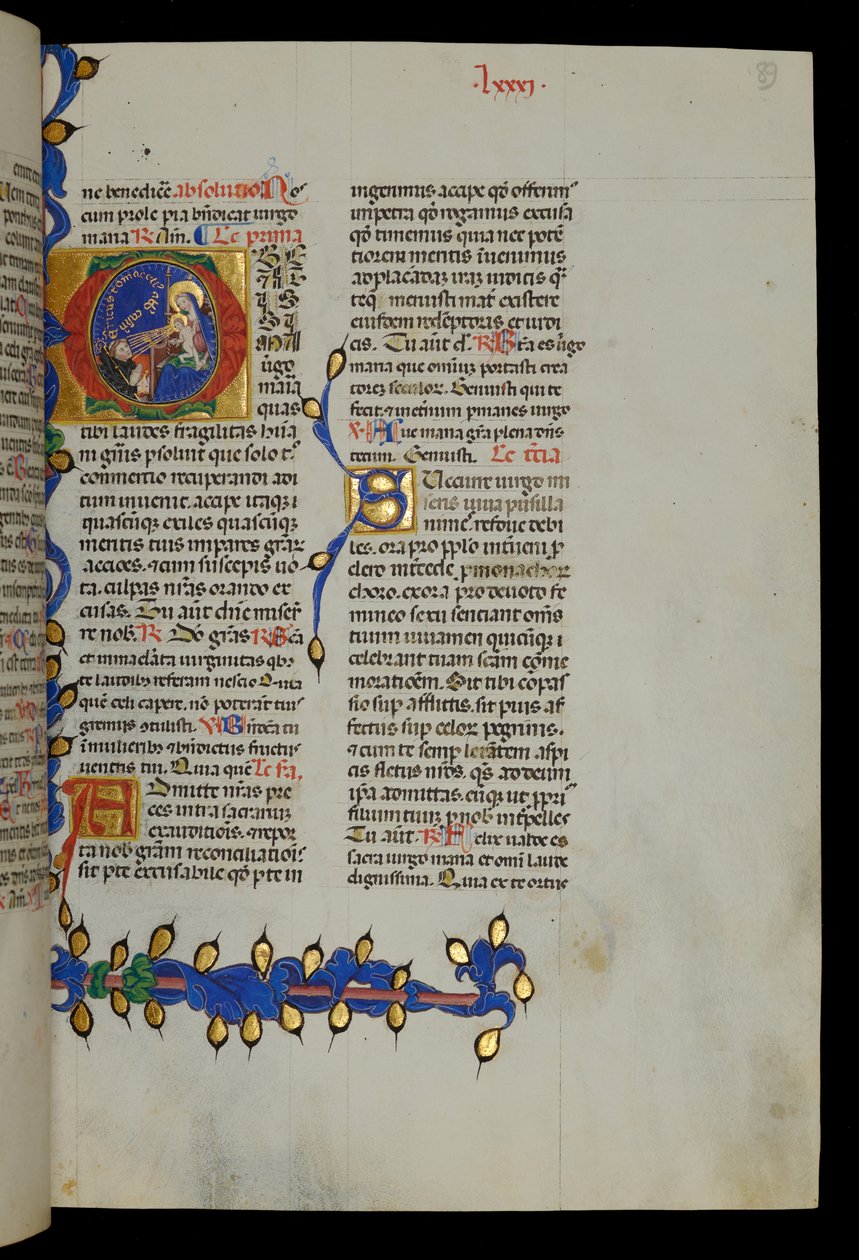 ·lxxxi·
89
ne benedicc̄e absolutio Nos
cum prole pia bn̄dicat uirgo
maria R Am̄. Le prima
O BE
ATA
ugo
maīa
quas
tibi laudes fragilitas huīa
ni gn̄is psoluit que solo t°
commertio recuperandi adi
tum inuenit. accipe itaq; i
quascūq; exiles quascūq;
meritis tuis impares grār
acc̄oes. ⁊ cum suscepis uo
ta. culpas nr̄as orando ex
cusas. Tu aūt dn̄e miser̄
re nob. R Dō grās R Scā
et inmaclāta uirginitas qb⁹
te laudib⁹ referam nescio Quia
quē celi capere. nō poterāt tuo
gremio ↄtulisti. V Bn̄dcā tu
ī mulierib⁹ ⁊ bn̄dictus fructus
uentris tui. Quia quē Le sa,
Admitte nr̄as pre
ces intra sacrarium
exauditiōis. ⁊ repor
ta nob grām reconciliatiōis
sit p te excusabile qd̄ p te in
ingerimus accipe qd̄ offerim⁹
impetra qd̄ rogamus excusa
qd̄ timemus quia nec potē
tiorem meritis īuenimus
ad placādaz iraz iudicis q̄
teq meruisti mat̄ existere
eiusdem redēptoris et iudi
cis. Tu aūt d. R Btā es ūgo
maria que omīuz portasti crea
torez seculor. Genuisti qui te
fecit. ⁊ ineternum pmanes uirgo
V Aue maria grā plena dn̄s
tecum. Genuisti. Le tc̄ia
Succurre uirgo mi
seris iuua pusilla
nimes. refoue debi
les. ora pro pplo interueni p
clero intcede p monachor
choro. exora pro deuoto fe
mineo sexu sentiant om̄s
tuum iuuamen quicūq; i
celebrant tuam scām cōme
moratioēm. Sit tibi cōpas
sio sup afflictis. sit pius af
fectus sup celor pegrinis.
⁊ cum te semp letātem aspi
cis fletus nr̄os. qs̄ ad deum
ip̄a admittas. eūq; ut ppri⁹
filium tuum p nob interpelles
Tu aūt. R Felix ualde es
sacra uirgo maria et omī laude
dignissima. Quia ex te ortus